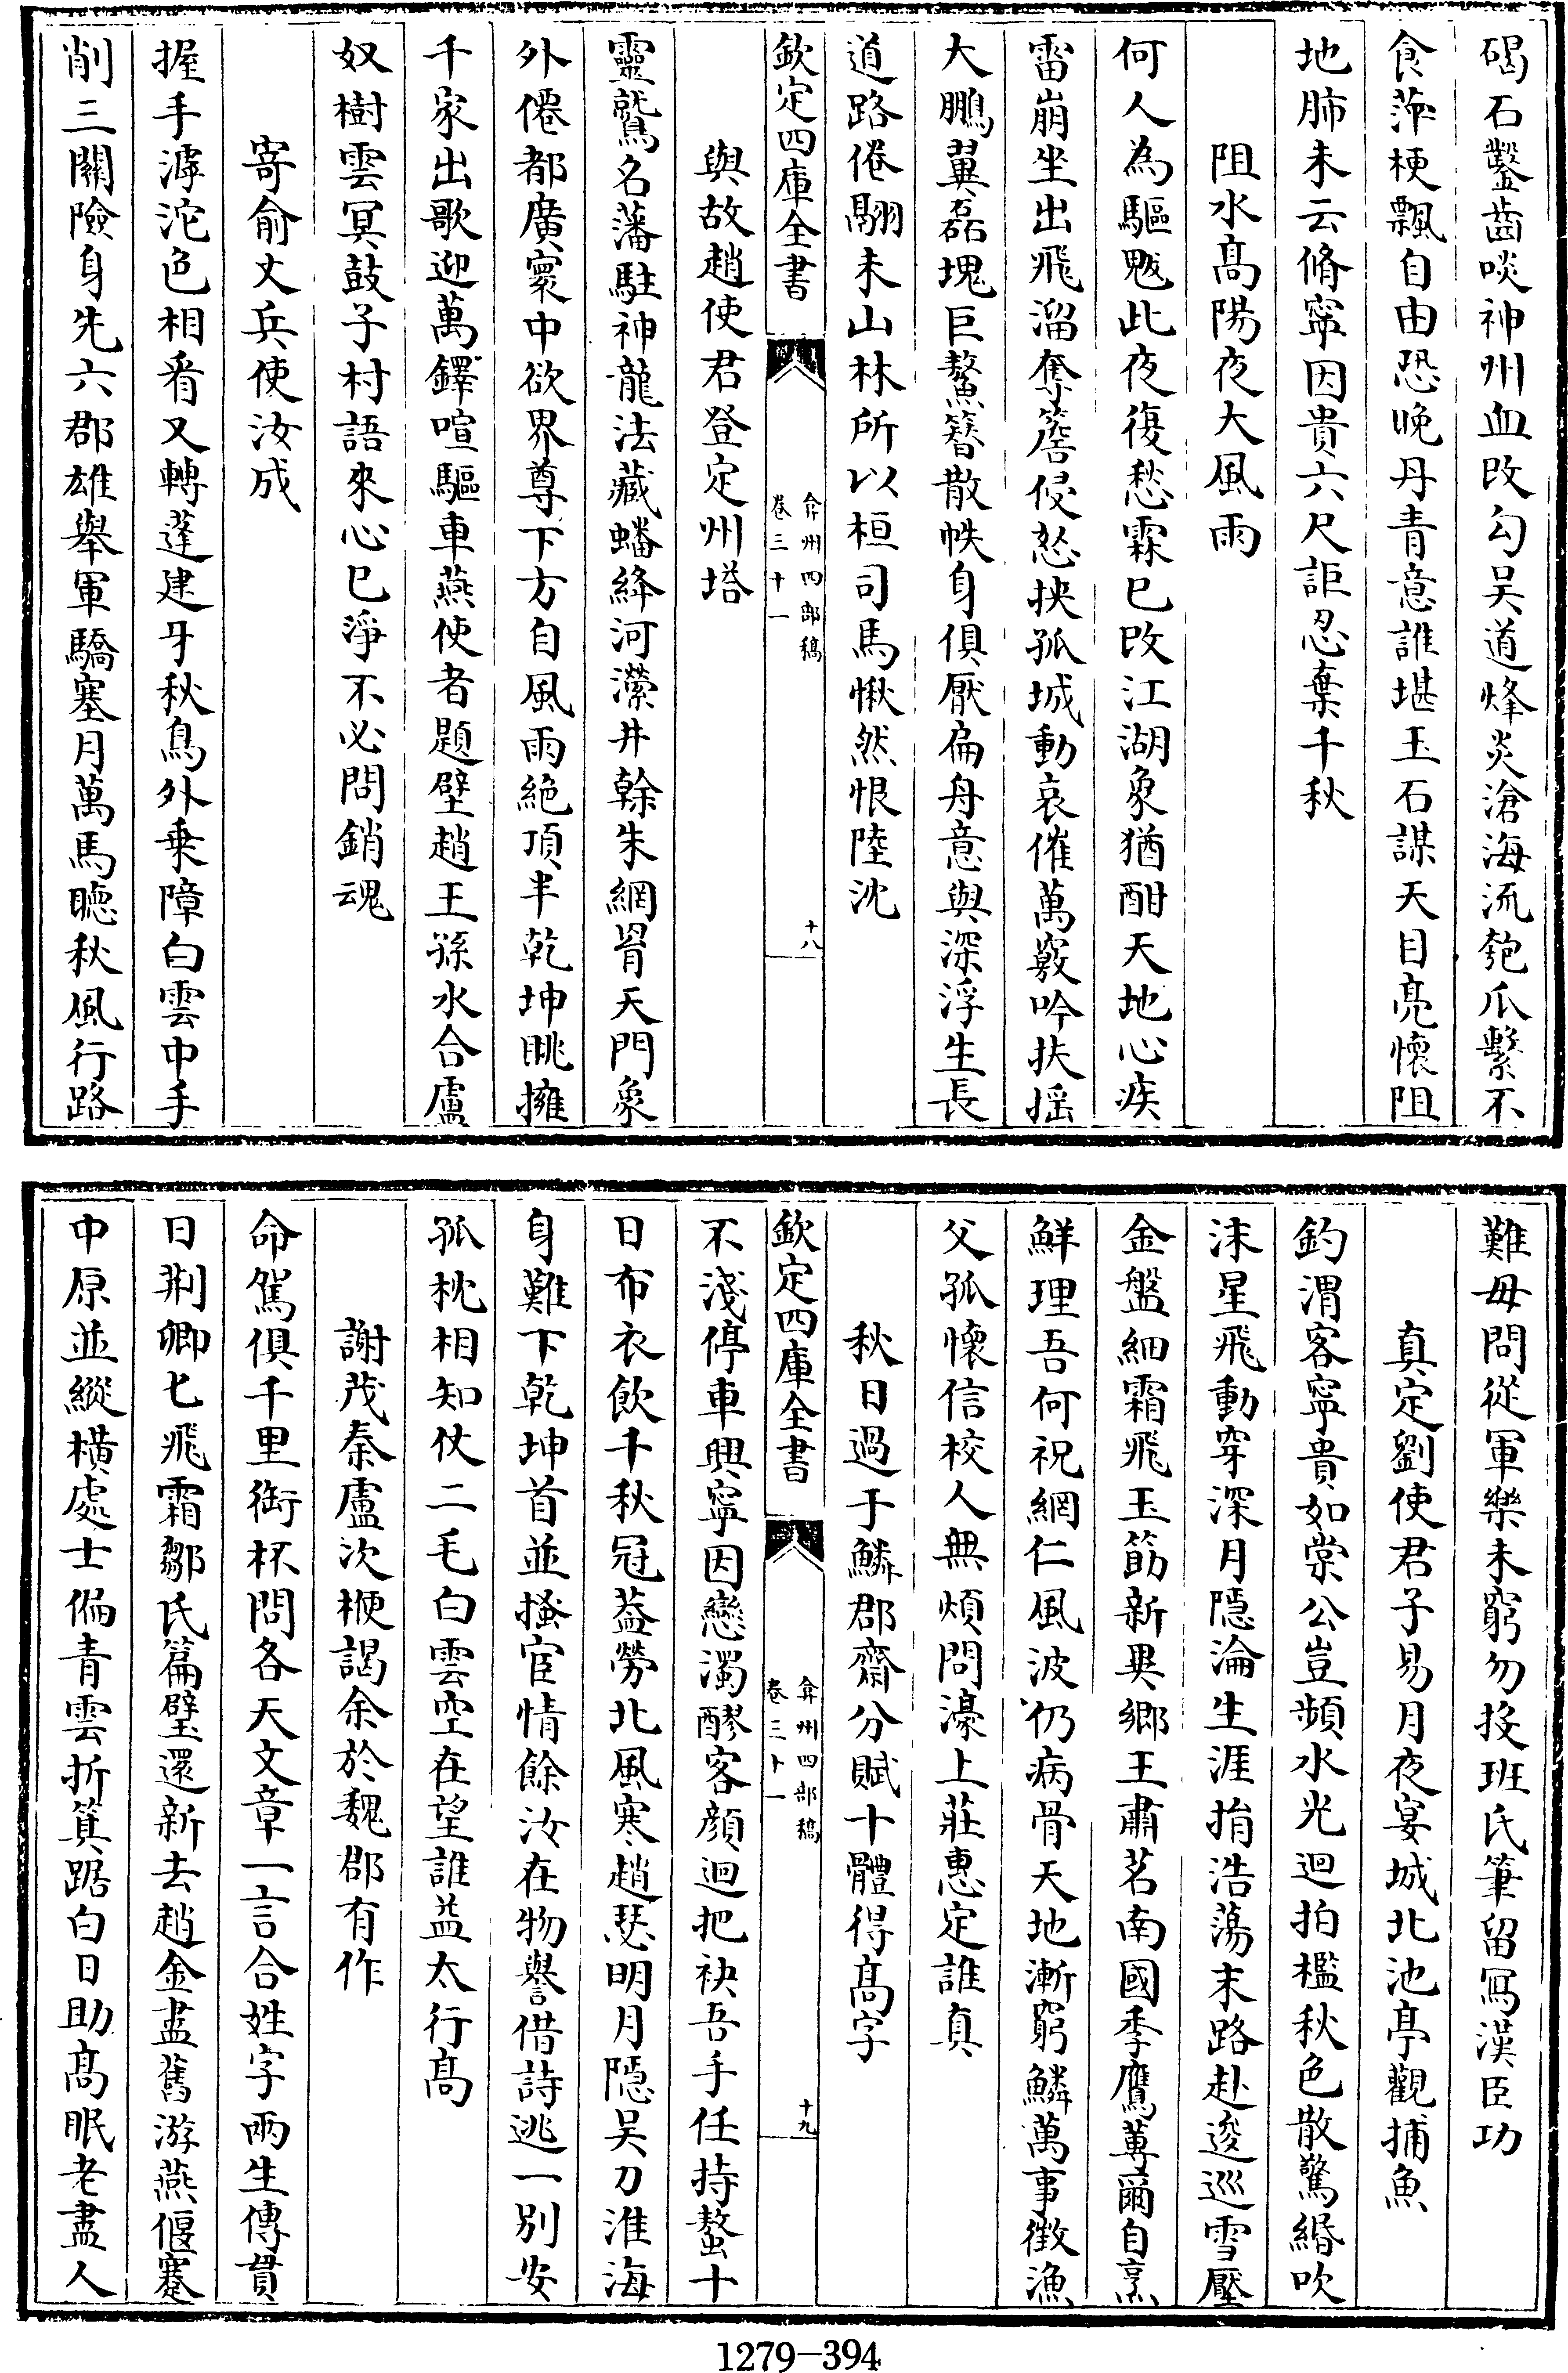 碣石鑿齒啖神州血改勾吴道烽炎滄海流匏爪繫不
食萍梗飄自由恐晚丹青意誰堪玉石謀天目亮懷阻
地肺未云脩寜因貴六尺詎忍棄千秋
阻水髙陽夜大風雨
何人為驅魃此夜復愁霖已改江湖象猶酣天地心疾
雷崩坐出飛溜奪簷侵怒挾孤城動哀催萬竅吟扶揺
大鵬翼磊塊巨鰲簪散帙身俱厭扁舟意與深浮生長
道路倦翮未山林所以桓司馬愀然恨陸沈
欽定四庫全書
弇州四部稿
卷三十一
十八
與故趙使君登定州塔
靈鷲名藩駐神龍法藏蟠絳河瀠井榦朱網罥天門象
外僊都廣寰中欲界尊下方自風雨絶頂半乾坤眺擁
千家出歌迎萬鐸喧驅車燕使者題壁趙王孫水合盧
奴樹雲冥鼓子村語來心已淨不必問銷魂
寄俞丈兵使汝成
握手滹沱色相看又轉蓬建牙秋鳥外乗障白雲中手
削三關險身先六郡雄舉軍驕塞月萬馬聴秋風行路
難毋問從軍樂未窮勿投班氏筆留冩漢臣功
真定劉使君子易月夜宴城北池亭觀捕魚
釣渭客寜貴如棠公豈頻水光迴拍檻秋色散驚緡吹
沫星飛動穿深月隠淪生涯捐浩蕩末路赴逡巡雪壓
金盤細霜飛玉筯新異鄉王肅茗南國季鷹蓴爾自烹
鮮理吾何祝網仁風波仍病骨天地漸窮鱗萬事徴漁
父孤懷信校人無煩問濠上莊惠定誰真
秋日過于鱗郡齋分賦十體得髙字
欽定四庫全書
弇州四部稿
卷三十一
十九
不淺停車興寜因戀濁醪客顔迴把袂吾手任持螯十
日布衣飲千秋冠葢勞北風寒趙瑟明月隠吴刀淮海
身難下乾坤首並搔宦情餘汝在物譽借詩逃一别安
孤枕相知仗二毛白雲空在望誰益太行髙
謝茂秦盧次楩謁余於魏郡有作
命駕俱千里銜杯問各天文章一言合姓字兩生傳貫
日荆卿匕飛霜鄒氏篇璧還新去趙金盡舊游燕偃蹇
中原並縱横處士偏青雲折箕踞白日助髙眠老盡人
1279-394